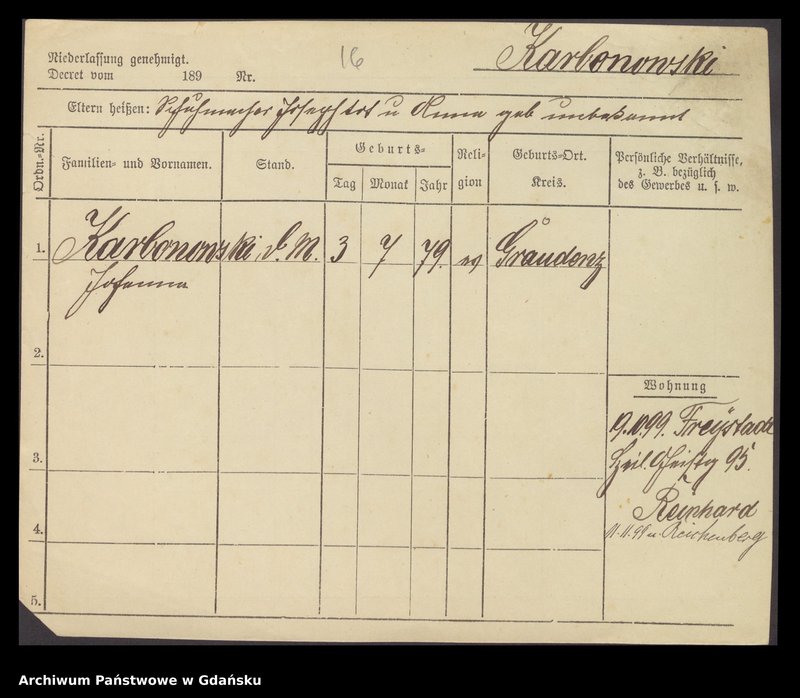 Niederlassung genehmigt.
Decret vom 189 Nr.
16
Karbonowski
Eltern heißen: Schuhmacher Joseph tot u Anna geb unbekannt
Ordn.-Nr.
Familien- und Vornamen.
Stand.
Geburts-
Tag
Monat
Jahr
Reli-
gion
Geburts-Ort.
Kreis.
Persönliche Verhältnisse,
z. B. bezüglich
des Gewerbes u. s. w.
1. Karbonowski, D. M. 3 7 79. ev Graudenz
Johanna
2.
Wohnung
19.10.99. Freystadt
3.
Heil. Geistg 95.
Reinhard
4.
11.11.99 n. Reichenberg
5.
Archiwum Państwowe w Gdańsku